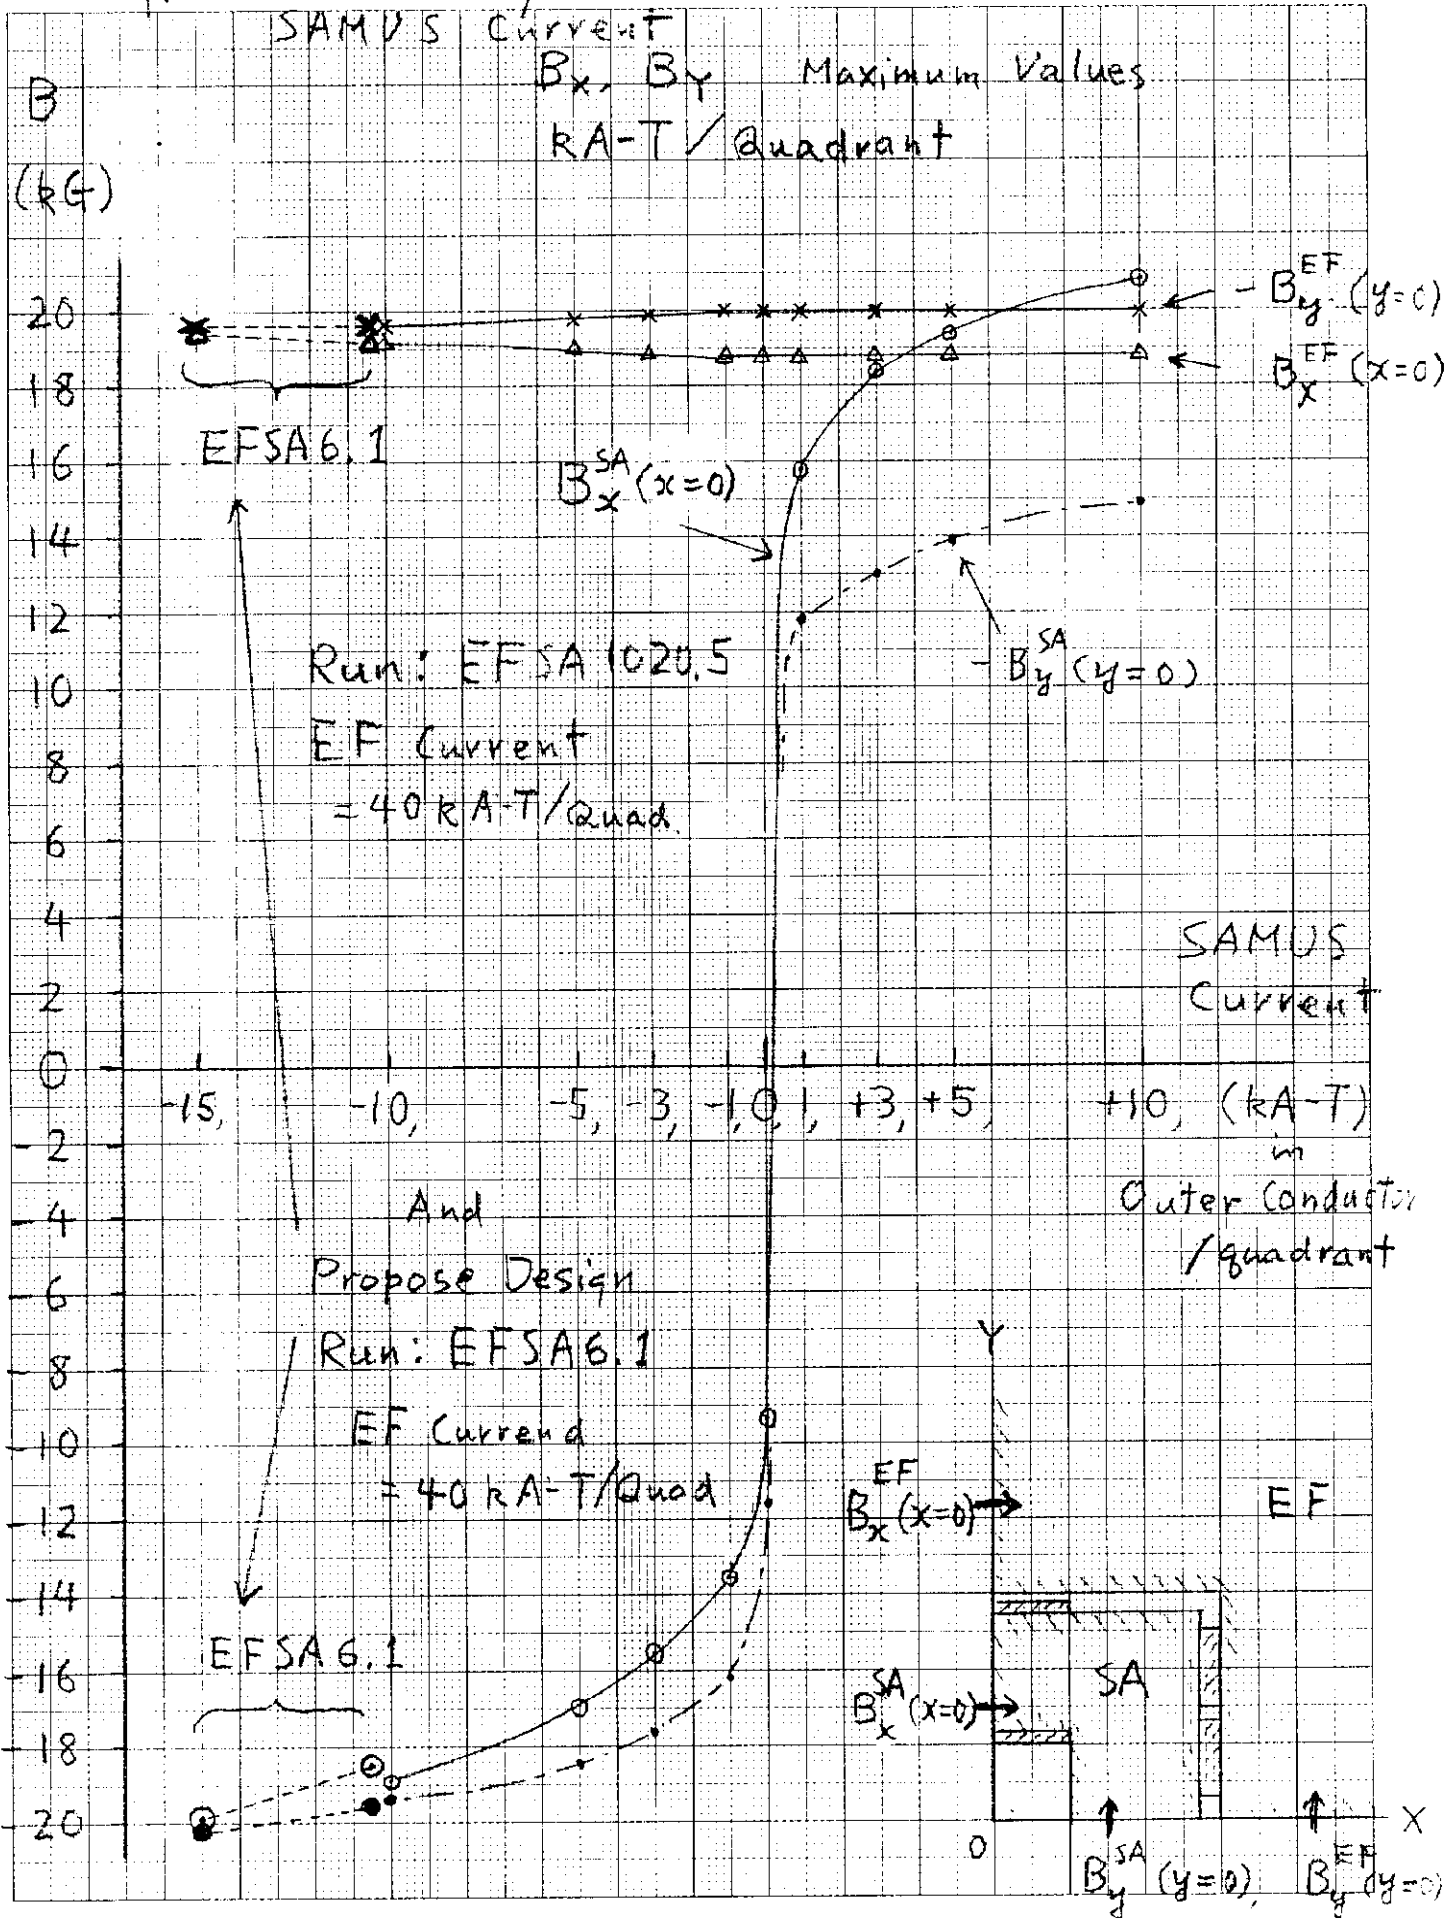 SAMUS Current
Bx, By Maximum Values
kA-T/Quadrant
B
(kG)
20
18
16
14
12
10
8
6
4
2
0
-2
-4
-6
-8
-10
-12
-14
-16
-18
-20
- By^EF (y=0)
Bx^EF (x=0)
EFSA6.1
Bx^SA (x=0)
- By^SA (y=0)
Run: EFSA1020.5
EF Current
= 40kA-T/Quad.
SAMUS
Current
-15, -10, -5, -3, -1, 0, 1, +3, +5, +10, (kA-T)
in
Outer Conductor
/quadrant
And
Propose Design
Run: EFSA6.1
EF Current
= 40kA-T/Quad
EFSA6.1
Y
Bx^EF (x=0)
EF
Bx^SA (x=0)
SA
0
X
By^SA (y=0), By^EF (y=0)